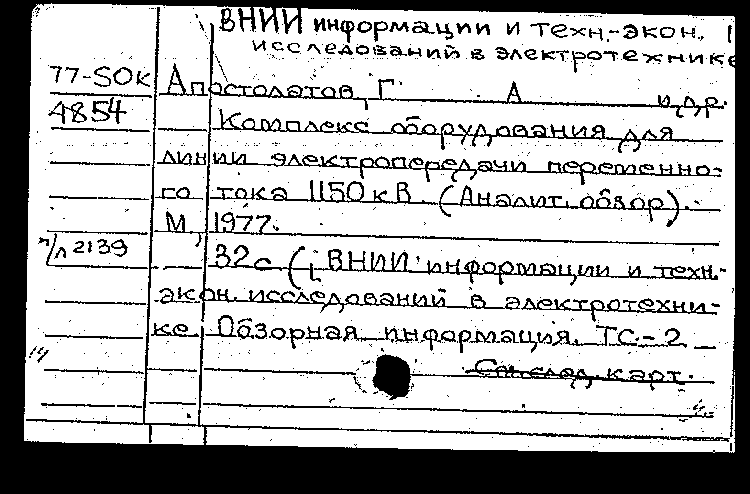 ВНИИ информации и техн.-экон.
исследований в электротехнике
77-SOK Апостолатов, Г. А и др.
4854 Комплекс оборудования для
линии электропередачи переменно-
го тока 1150 кВ. (Аналит. обзор).-
М., 1977.
п/л 2139 32 с (ВНИИ информации и техн.-
экон. исследований в электротехни-
ке. Обзорная информация. ТС-2
14 См. след. карт.